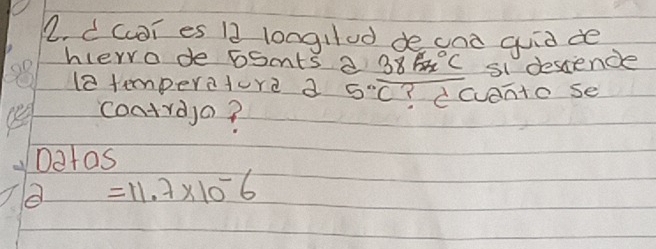 2. ¿ Cual es la longitud de una guia de
hierro de 5 5mts a 38 °C si desciende
la temperatura a 5°C? ¿ cuanto se
contrajo?
Datos
a = 11.7 x 10 -6